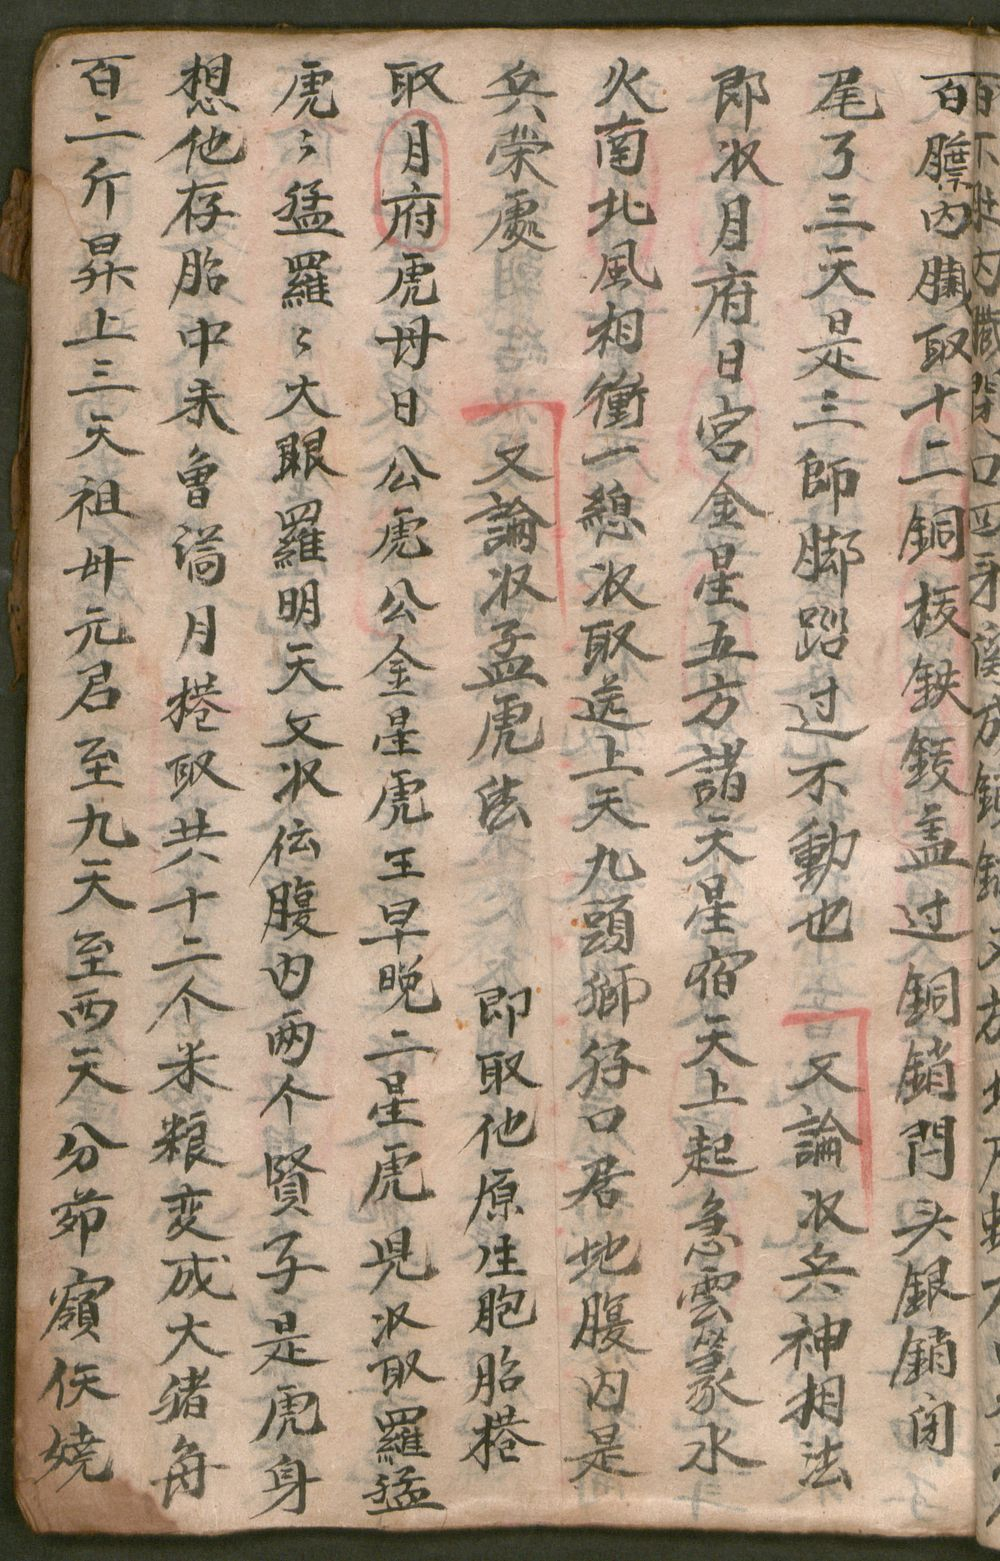 百膽內臟取十二銅板鉄鍐盖过銅銷閂头銀銷闭
尾了三天是三師脚踏过不動也 又論収兵神相法
即收月府日宮金星五方諸天星宿天上起急雲篆水
火南北風相衝一總收取送上天九頭獅狩口君地腹内是
兵荣處 又論収孟虎法 即取他原生胞胎捲
取月府虎母日公虎公金星虎王早晚二星虎児收取羅猛
虎〻猛羅〻大眼羅明天文収伝腹内兩个賢子是虎身
想他存胎中未曾滿月捲取共十二个米粮变成大猪每
百二斤昇上三天祖母元君至九天至西天分茆嶺俟燒